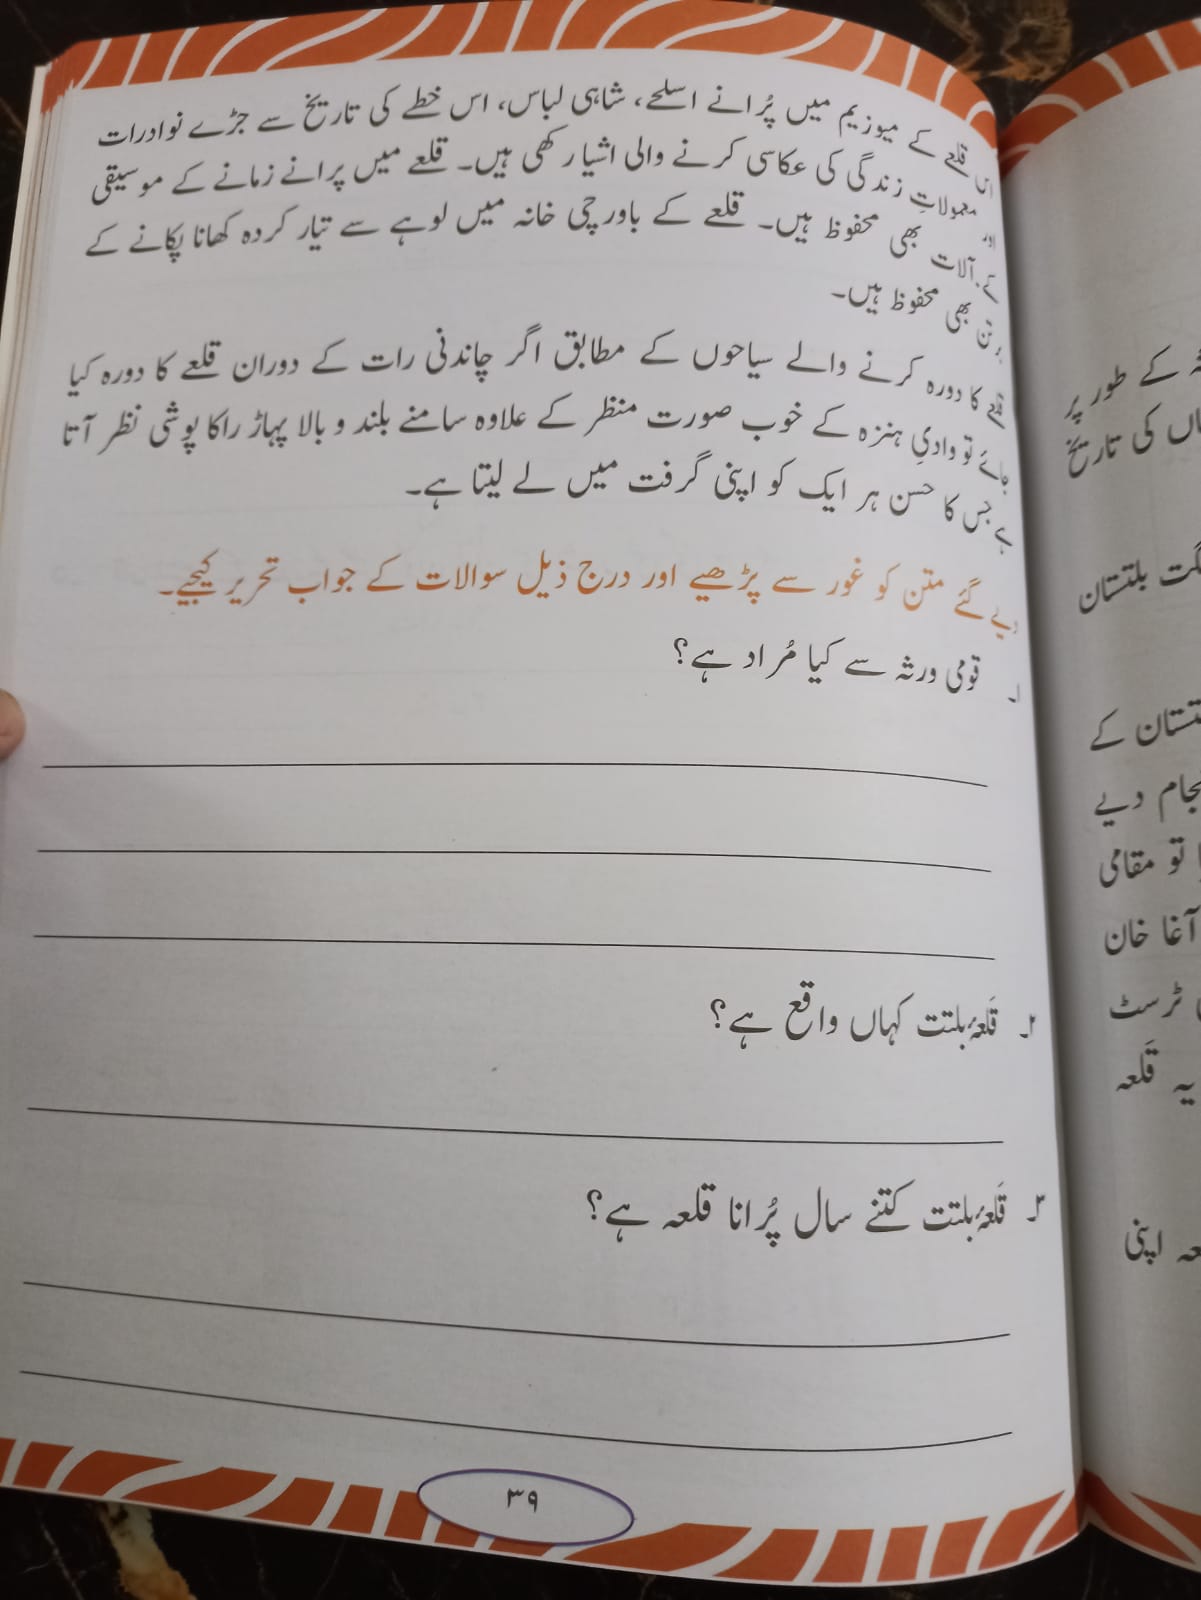 اس قلعے کے میوزیم میں پُرانے اسلحے، شاہی لباس، اس خطے کی تاریخ سے جڑے نوادرات
اور معمولاتِ زندگی کی عکاسی کرنے والی اشیا رکھی ہیں۔ قلعے میں پرانے زمانے کے موسیقی
کے آلات بھی محفوظ ہیں۔ قلعے کے باورچی خانہ میں لوہے سے تیار کردہ کھانا پکانے کے
برتن بھی محفوظ ہیں۔
قلعے کا دورہ کرنے والے سیاحوں کے مطابق اگر چاندنی رات کے دوران قلعے کا دورہ کیا
جائے تو وادیِ ہنزہ کے خوب صورت منظر کے علاوہ سامنے بلند و بالا پہاڑ راکا پوشی نظر آتا
ہے جس کا حسن ہر ایک کو اپنی گرفت میں لے لیتا ہے۔
دیے گئے متن کو غور سے پڑھیے اور درج ذیل سوالات کے جواب تحریر کیجیے۔
۱۔ قومی ورثہ سے کیا مُراد ہے؟
۲۔ قَلعۂ بلتت کہاں واقع ہے؟
۳۔ قَلعۂ بلتت کتنے سال پُرانا قلعہ ہے؟
۳۹
کے طور پر
کی تاریخ
بلتستان
کے
دیے
تو مقامی
آغا خان
ٹرسٹ
یہ قَلعہ
اپنی